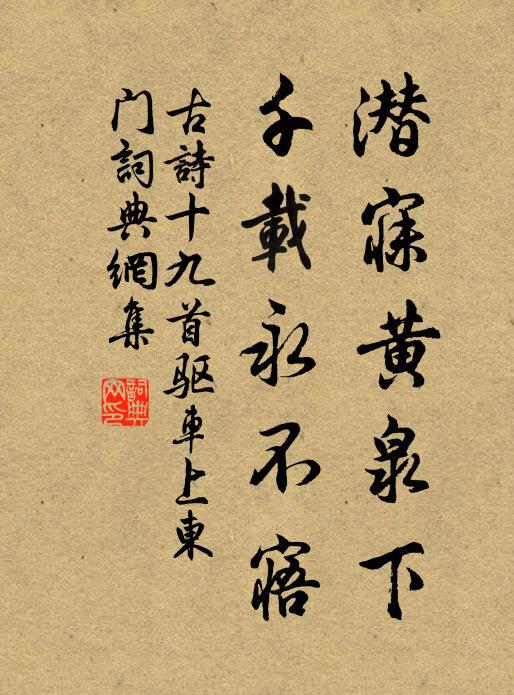 潜寐黄泉下
千載永不寤
古詩十九首驱車上東
门詞典網集
詞典网印